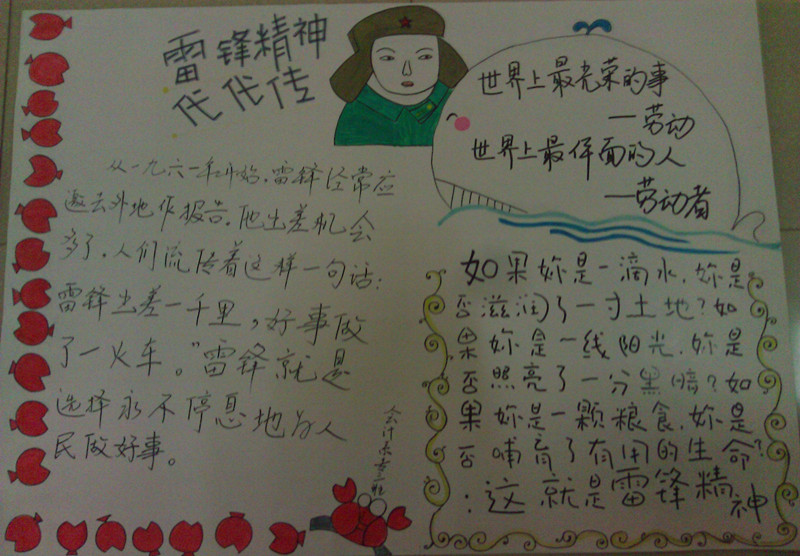 雷锋精神
代代传
从一九六一年开始,雷锋经常应
邀去外地作报告,他出差机会
多了,人们流传着这样一句话:
雷锋出差一千里,好事做
了一火车。"雷锋就是
选择永不停息地为人
民做好事。
会计
世界上最光荣的事
—劳动
世界上最体面的人
—劳动者
如果妳是一滴水,妳是
否滋润了一寸土地?如
果妳是一线阳光,妳是
否照亮了一分黑暗?如
果妳是一颗粮食,妳是
否哺育了有用的生命?
:这就是雷锋精神